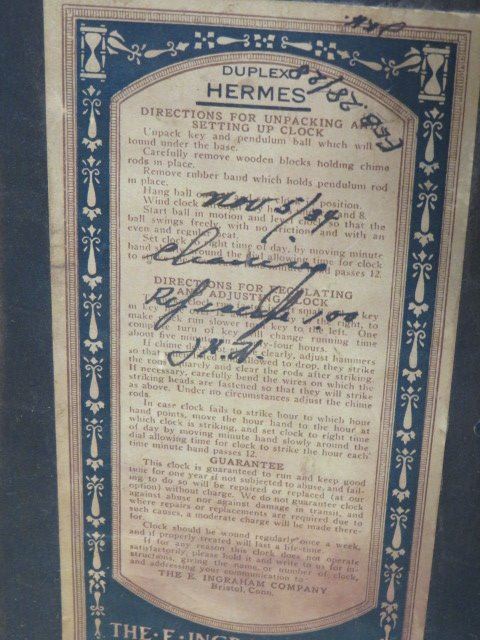 Feb. 28/28
DUPLEX
HERMES
DIRECTIONS FOR UNPACKING AND
SETTING UP CLOCK
Unpack key and pendulum ball which will
found under the base.
Carefully remove wooden blocks holding chime
rods in place.
Remove rubber band which holds pendulum rod
in place.
Hang ball position.
Wind clock and 8.
Nov 5/34
Start ball in motion and so that the
ball swings freely with no friction and with an
even and regular beat.
Set clock right time of day, by moving minute
hand around the dial allowing time for clock
to passes 12.
Cleaning
DIRECTIONS FOR REGULATING
AND ADJUSTING CLOCK
key
in right, to
make run slower key to the left. One
complete turn of key will change running time
about five twenty-four hours.
If chime clearly, adjust hammers
so that allowed to drop, they strike
the squarely and clear the rods after striking.
If necessary, carefully bend the wires on which the
striking heads are fastened so that they will strike
as above. Under no circumstances adjust the chime
rods.
In case clock fails to strike hour to which hour
hand points, move the hour hand to the hour at
which clock is striking, and set clock to right time
of day by moving minute hand slowly around the
dial allowing time for clock to strike the hour each
time minute hand passes 12.
GUARANTEE
This clock is guaranteed to run and keep good
time for one year if not subjected to abuse, and fail-
ing to do so will be repaired or replaced (at our
option) without charge. We do not guarantee clock
against abuse nor against damage in transit, and
where repairs or replacements are required due to
such causes, a moderate charge will be made there-
for.
Clock should be wound regularly once a week,
and if properly treated will last a life-time.
If for any reason this clock does not operate
satisfactorily, please hold it and write to us for in-
structions, giving the name or number of clock,
and addressing your communication to
THE E. INGRAHAM COMPANY
Bristol, Conn.
THE·E·INGR